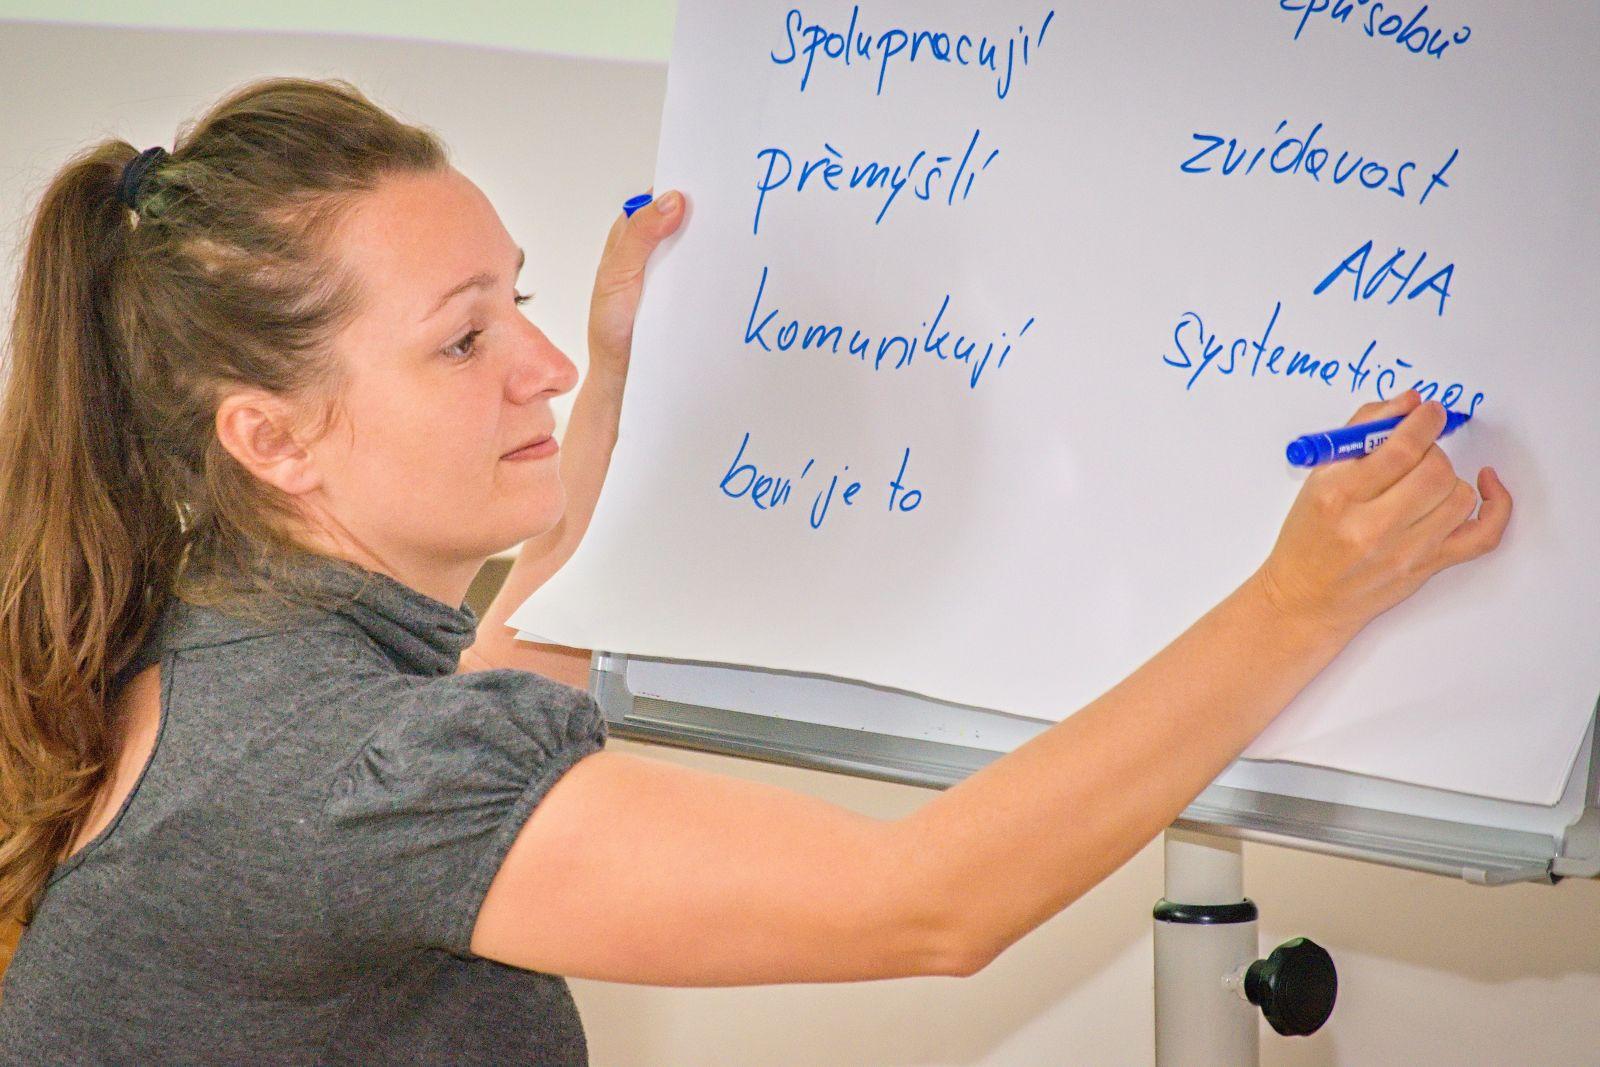 spolupracují
přemýšlí
komunikují
baví je to
způsobů
zvídavost
AHA
systematičnos
marker